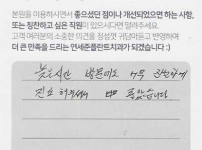 본원을 이용하시면서 좋으셨던 점이나 개선되었으면 하는 사항,
또는 칭찬하고 싶은 직원이 있으시다면 알려주세요.
고객 여러분의 소중한 의견을 정성껏 귀담아듣고 반영하여
더 큰 만족을 드리는 연세준플란트치과가 되겠습니다 :)
늦은시간 방문이도 너무 친절하게
진료 해주셔서 좋았습니다